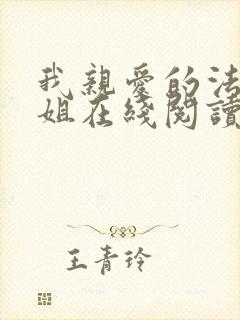 我親愛的法
姐在綫閱讀
王青玲